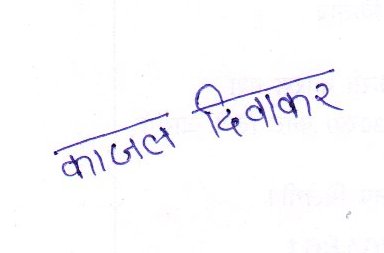 काजल दिवाकर